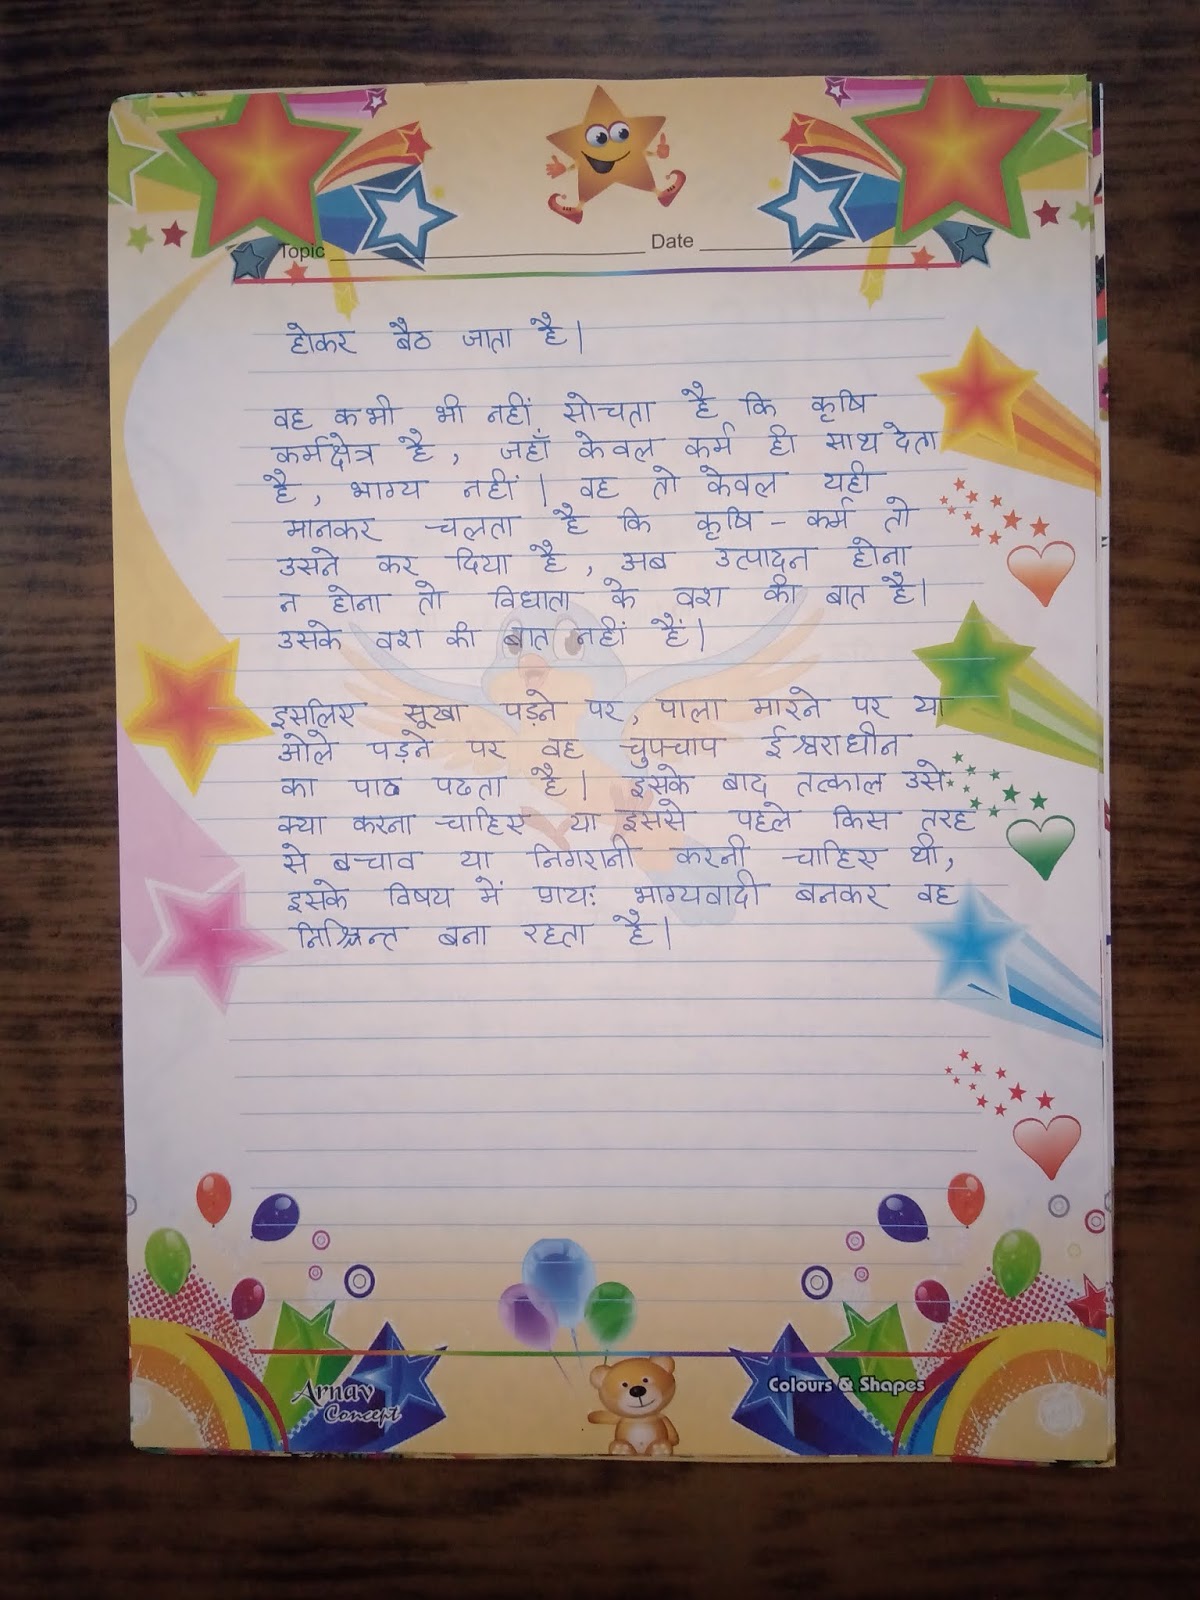 Topic Date
होकर बैठ जाता है।
वह कभी भी नहीं सोचता है कि कृषि
कर्मक्षेत्र है, जहाँ केवल कर्म ही साथ देता
है, भाग्य नहीं। वह तो केवल यही
मानकर चलता है कि कृषि - कर्म तो
उसने कर दिया है, अब उत्पादन होना
न होना तो विधाता के वश की बात है।
उसके वश की बात नहीं हैं।
इसलिए सूखा पड़ने पर, पाला मारने पर या
ओले पड़ने पर वह चुपचाप ईश्वराधीन
का पाठ पढता है। इसके बाद तत्काल उसे
क्या करना चाहिए या इससे पहले किस तरह
से बचाव या निगरानी करनी चाहिए थी,
इसके विषय में प्रायः भाग्यवादी बनकर वह
निश्चिन्त बना रहता है।
Arnav
Concept
Colours & Shapes